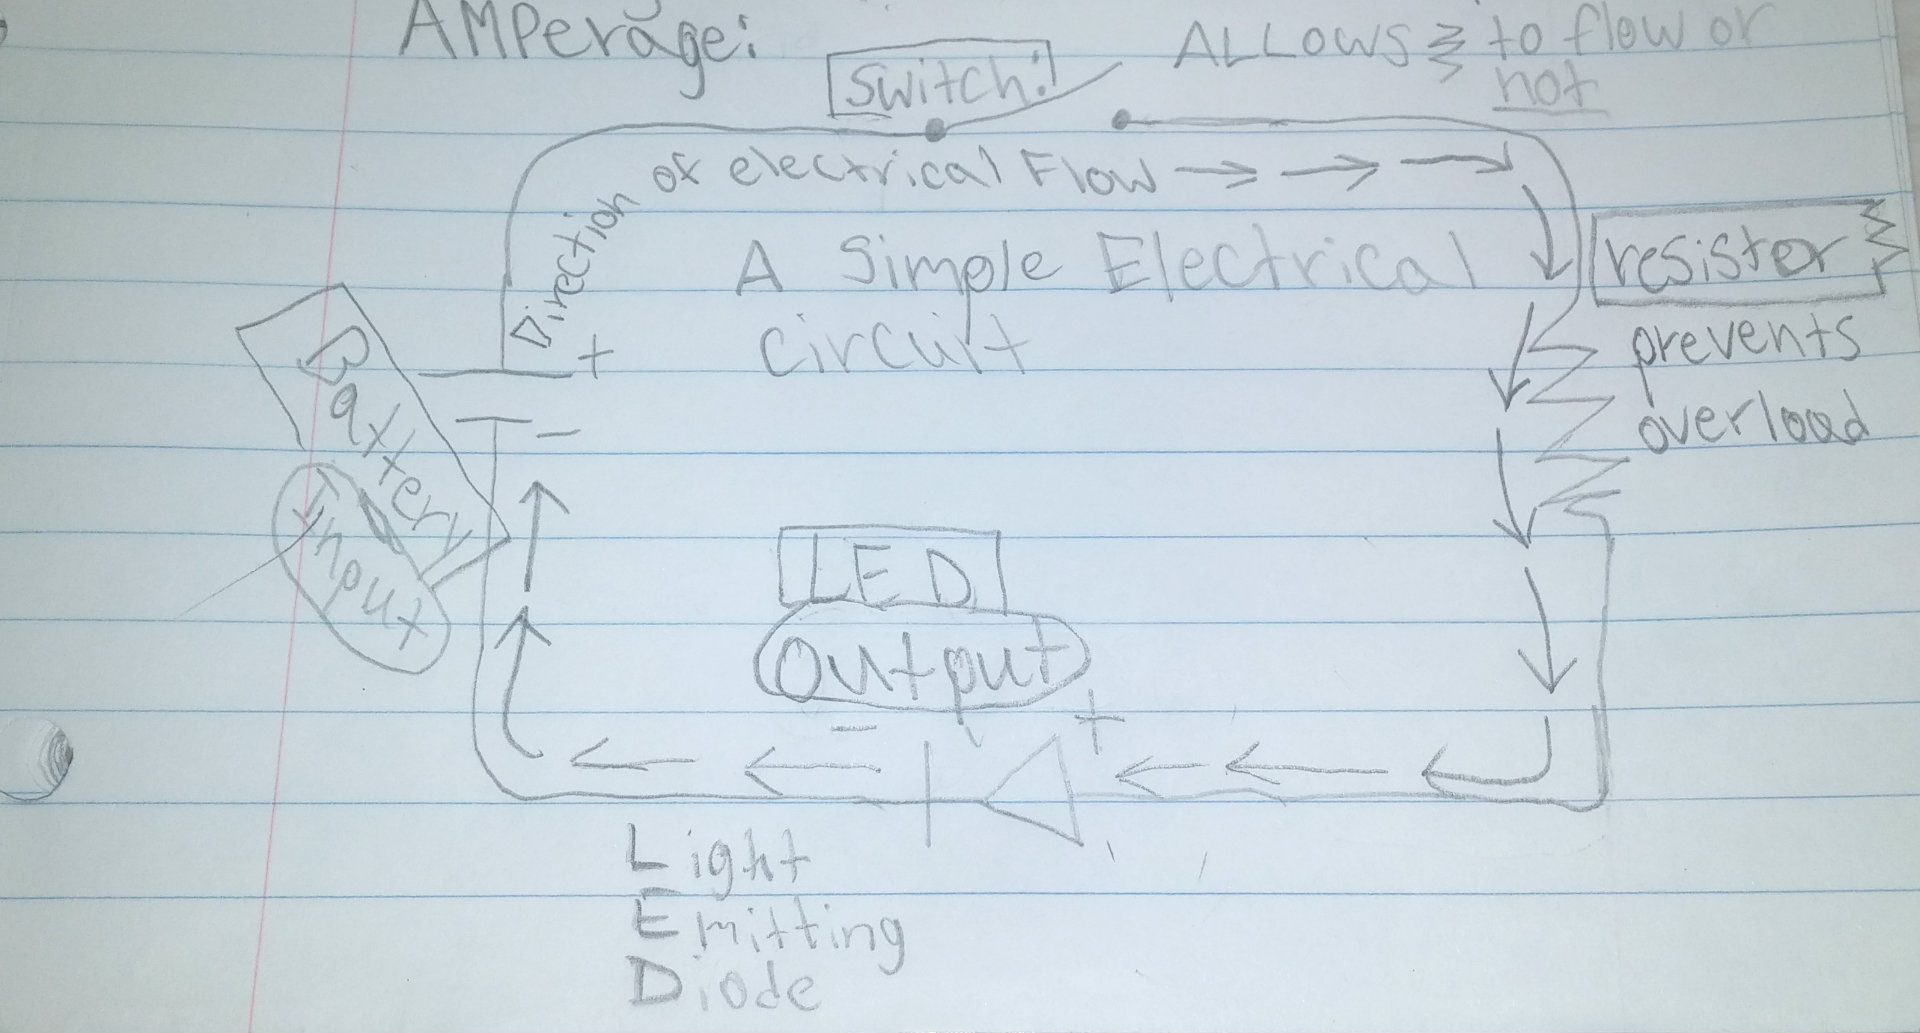 AMPerage:
Switch:
ALLOWS to flow or
not
Direction of electrical Flow
A Simple Electrical
circuit
resistor
prevents
overload
+
-
Battery
Input
LED
Output
- +
Light
Emitting
Diode